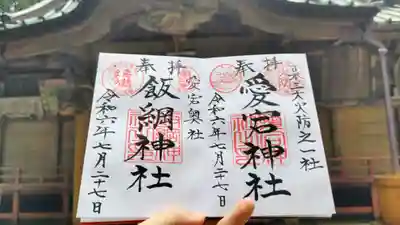 奉拝
日本三大火防之一社
愛宕神社
令和六年七月二十七日
奉拝
愛宕奥社
飯綱神社
令和六年七月二十七日